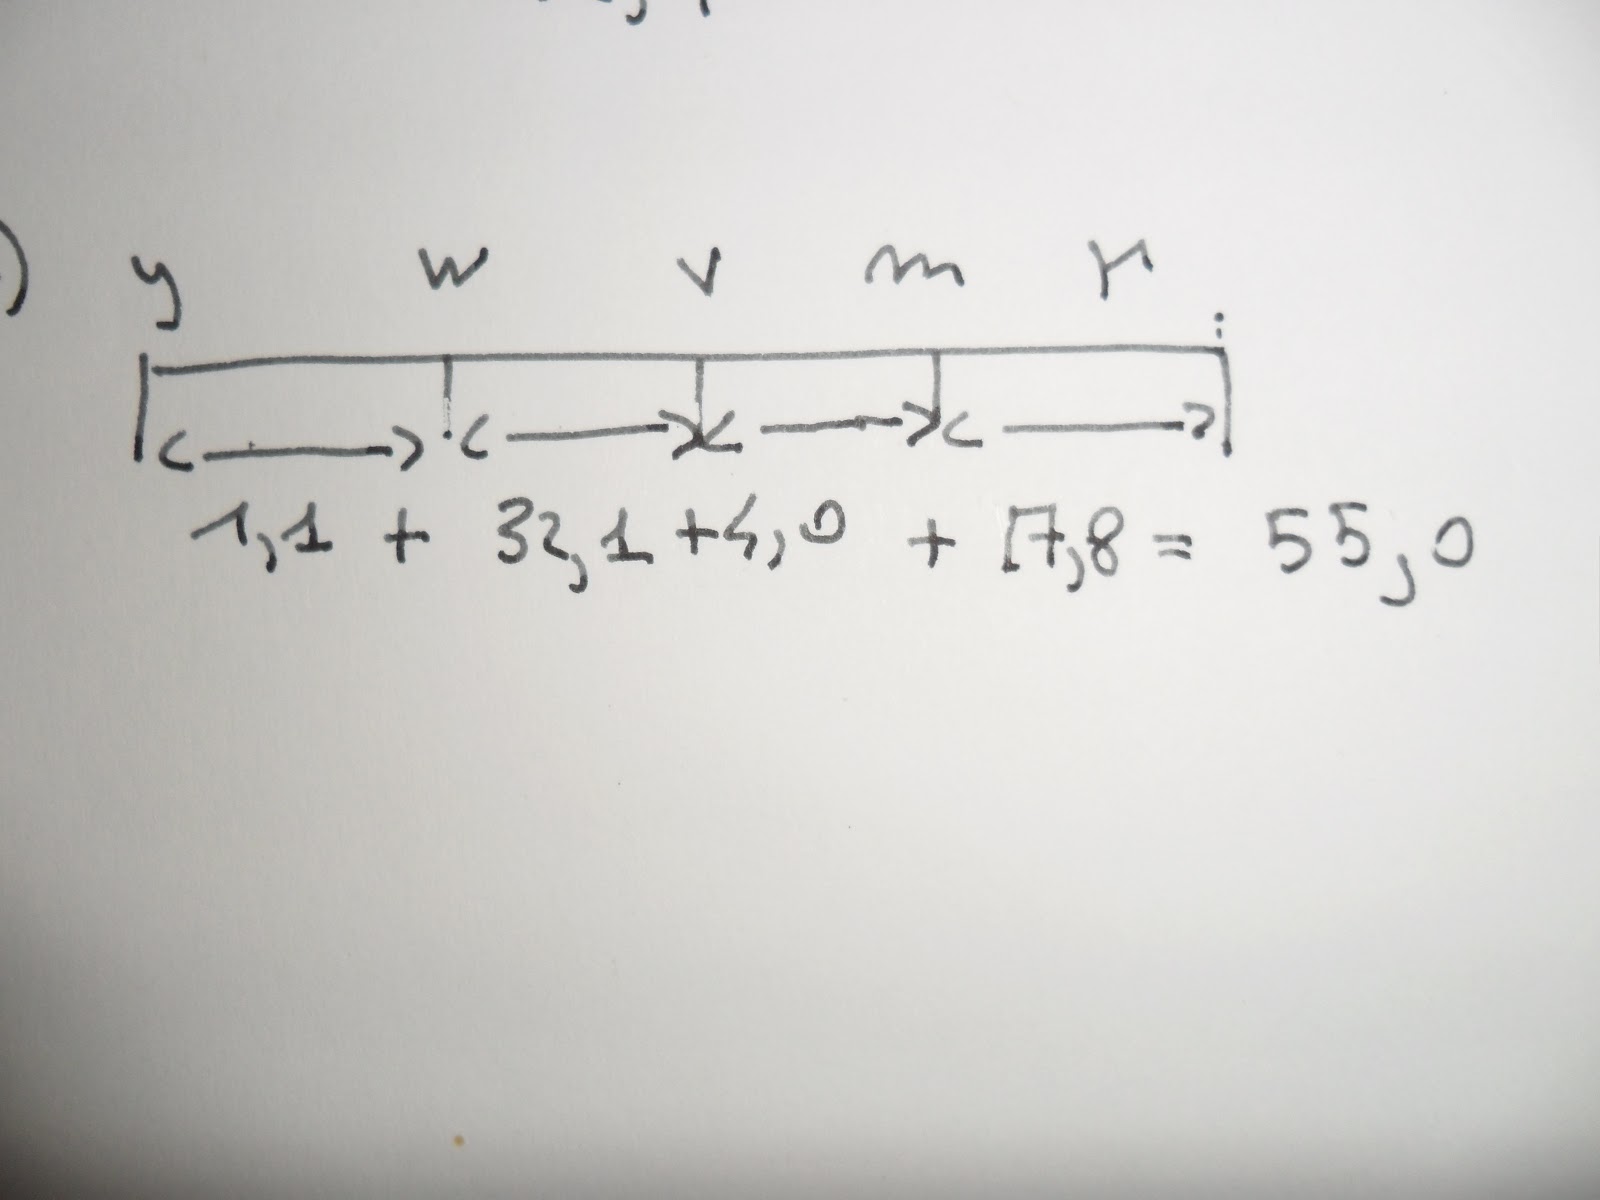 ) y w v m r
1,1 + 32,1 + 4,0 + 17,8 = 55,0